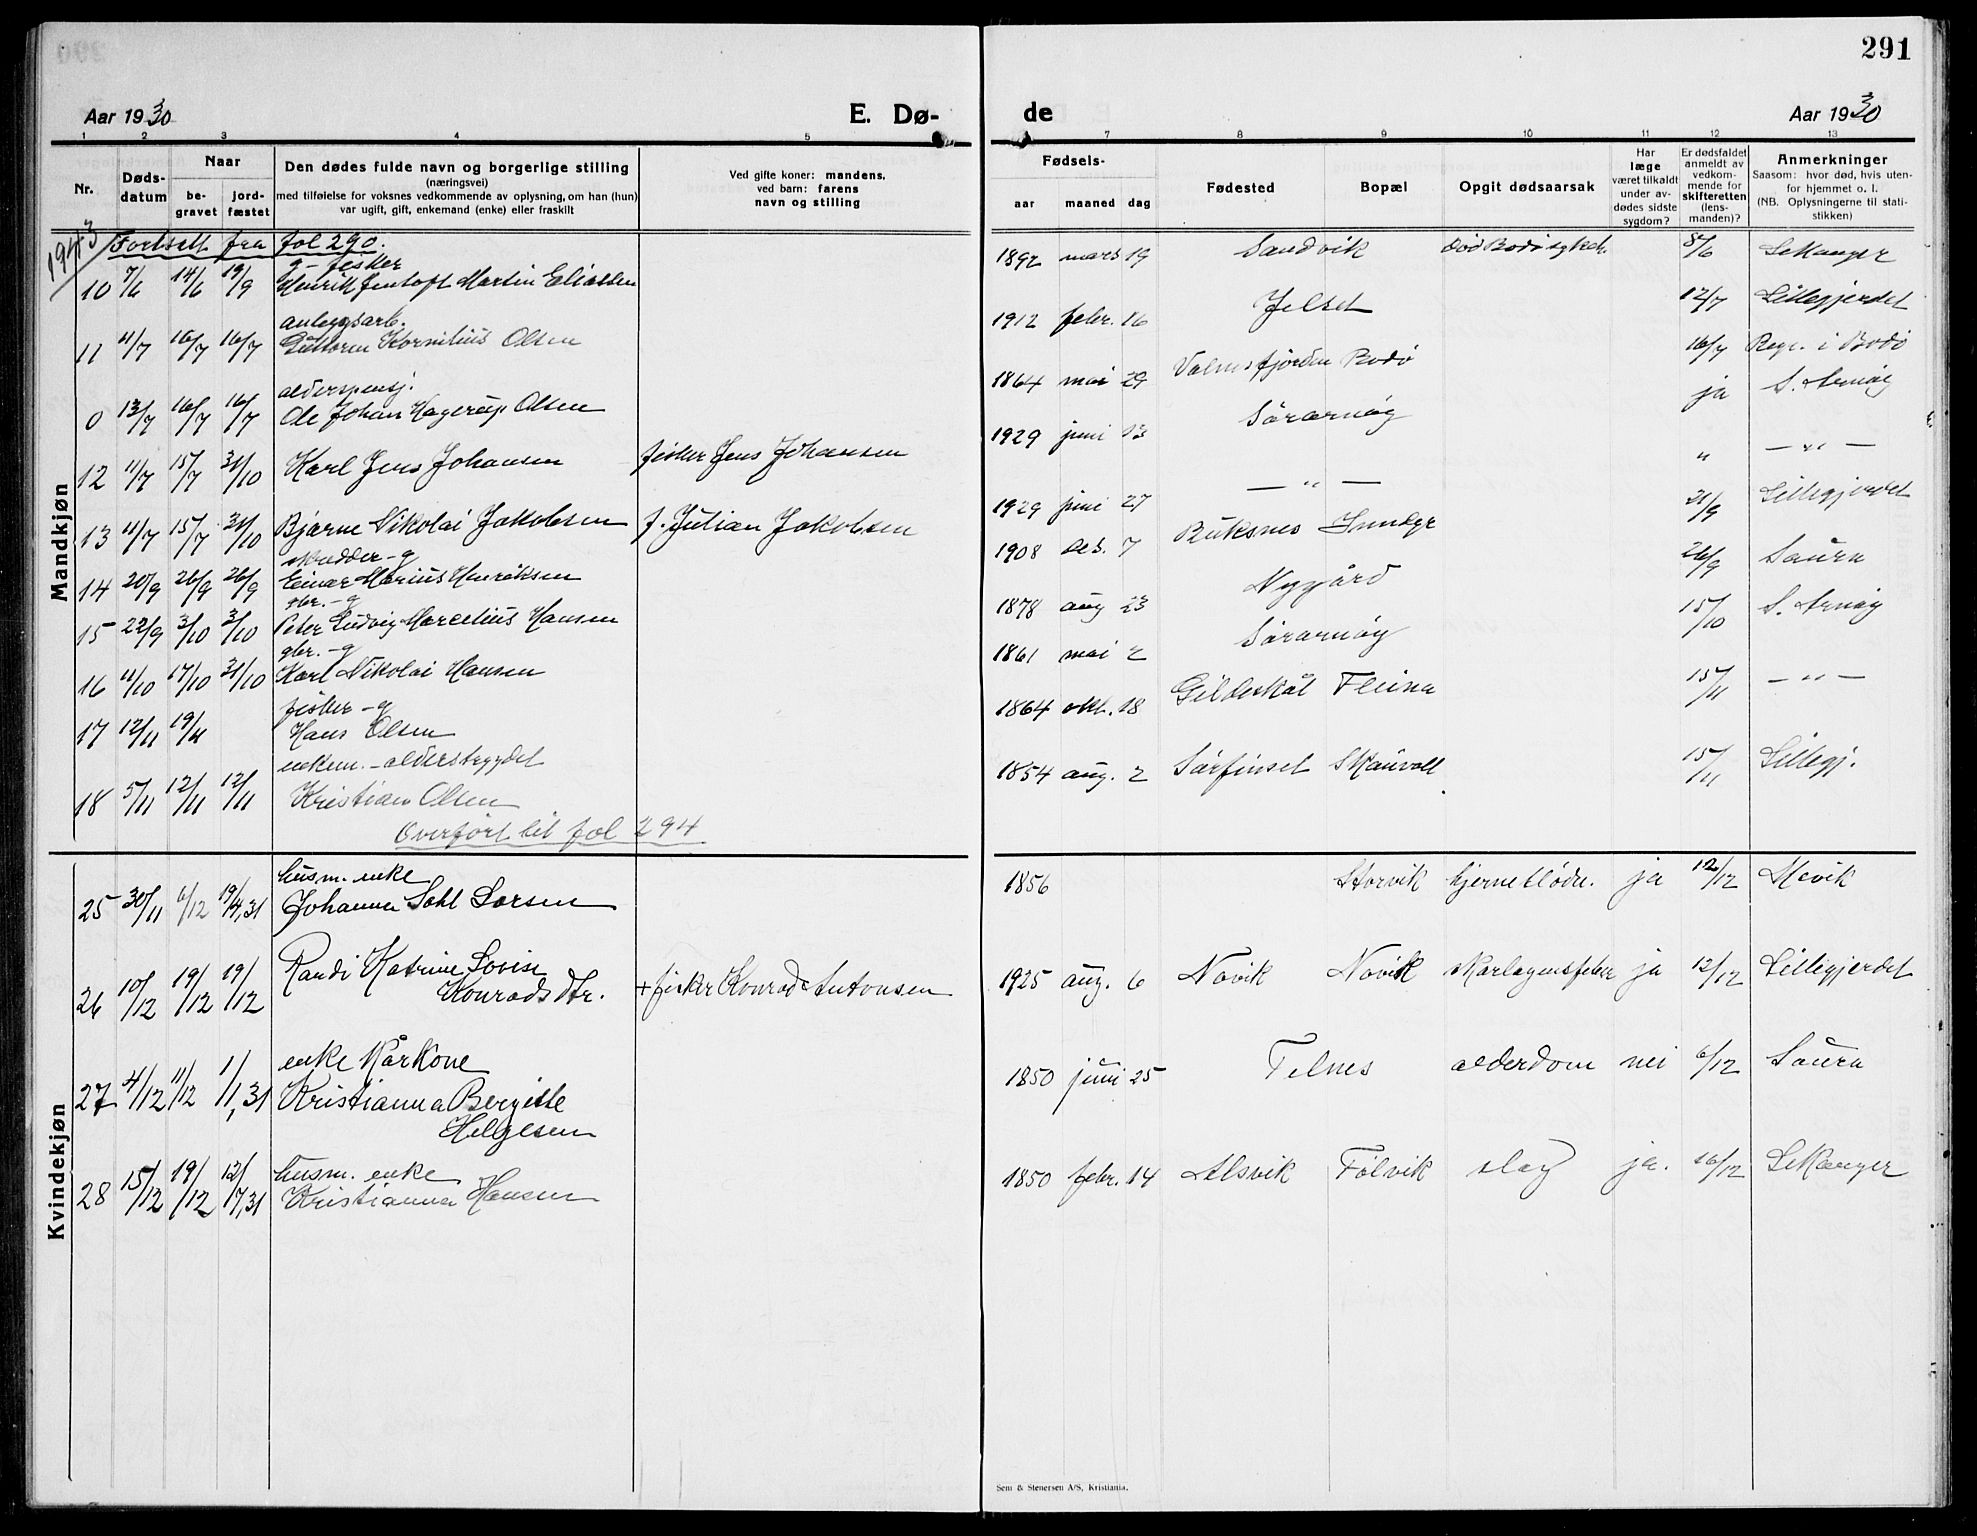 291
Aar 1930 E. Dø- de Aar 1930
1 2 3 4 5 7 8 9 10 11 12 13
Nr. Døds-datum Naar be-gravet jord-fæstet
Den dødes fulde navn og borgerlige stilling
(næringsvei)
med tilføielse for voksnes vedkommende av oplysning, om han (hun)
var ugift, gift, enkemand (enke) eller fraskilt
Ved gifte koner: mandens,
ved barn: farens
navn og stilling
Fødsels-
aar maaned dag
Fødested Bopæl Opgit dødsaarsak
Har læge været tilkaldt under av-dødes sidste sygdom?
Er dødsfaldet anmeldt av vedkom-mende for skifteretten (lens-manden)?
Anmerkninger
Saasom: hvor død, hvis uten-for hjemmet o. l.
(NB. Oplysningerne til stati-stikken)
Mandkjøn
1943 Fortsett fra fol 290.
g- fisker
10 7/6 14/6 19/9 Henrik Jentoft Martin Eliassen 1892 mars 19 Sandvik død Bodø sykeh. 8/6 Sekanger
anleggsarb.
11 11/7 16/7 16/7 Guttorm Kornelius Olsen 1912 febr. 16 Jelset 12/7 Lillegjerdet
alderspensj.
0 13/7 16/7 16/7 Ole Johan Hagerup Olsen 1864 mai 29 Valnesfjorden Bodø 16/7 Regr. i Bodø
12 11/7 15/7 31/10 Karl Jens Johansen fisker Jens Johansen 1929 juni 13 Sørarnøy ja S. Arnøy
13 11/7 15/7 31/10 Bjarne Nikolai Jakobsen f. Julian Jakobsen 1929 juni 27 — " — " — " —
skredder - g
14 20/9 26/9 26/9 Einar Marius Henriksen 1908 des. 7 Buksnes Inndyr 21/9 Lillegjerdet
gbr. - g
15 22/9 3/10 3/10 Peter Ludvig Marcelius Hansen 1878 aug 23 Nygård 26/9 Saura
gbr. - g
16 11/10 17/10 31/10 Karl Nikolai Hansen 1861 mai 2 Sørarnøy 15/10 S. Arnøy
fisker - g
17 12/11 19/11 Hans Olsen 1864 okt. 18 Gildeskål Fleina 15/11 — " —
enkem. - alderstrygdet
18 5/11 12/11 12/11 Kristian Olsen 1854 aug. 2 Sørfinset Skauvoll 15/11 Lillegj.
Overført til fol 294
Kvindekjøn
husm. enke
25 30/11 6/12 19/4,31 Johanna Sahl Larsen 1856 Storvik hjerneblødn. ja 12/12 Mevik
26 10/12 19/12 19/12 Randi Katrine Lovise
Konradsdtr. + fisker Konrad Antonsen 1925 aug. 6 Novik Novik skarlagensfeber ja 12/12 Lillegjerdet
enke kårkone
27 4/12 11/12 1/1,31 Kristianna Bergitte
Helgesen 1850 juni 25 Felnes alderdom nei 6/12 Saura
husm. enke
28 15/12 19/12 12/7,31 Kristianna Hansen 1850 febr. 14 Alsvik Følvik slag ja. 16/12 Sekanger
Sem & Stenersen A/S, Kristiania.